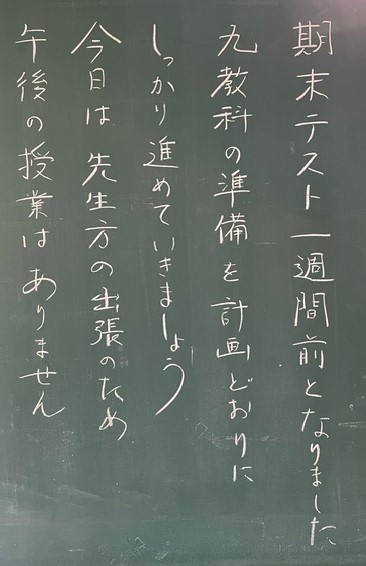 期末テスト一週間前となりました
九教科の準備を計画どおりに
しっかり進めていきましょう
今日は先生方の出張のため
午後の授業はありません